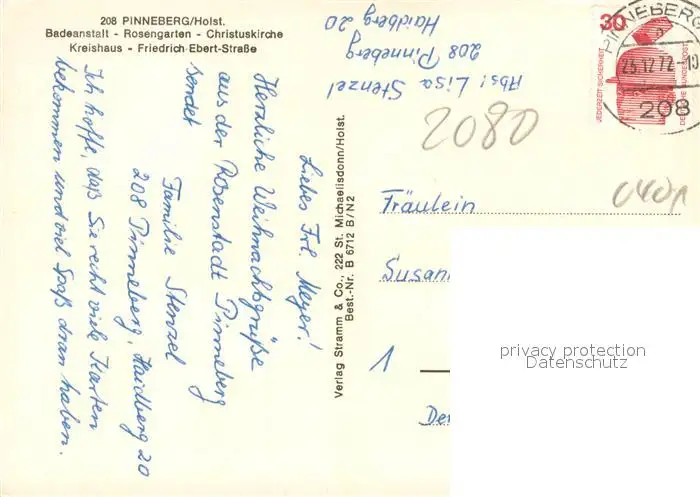 208 PINNEBERG/Holst.
Badeanstalt - Rosengarten - Christuskirche
Kreishaus - Friedrich-Ebert-Straße
Liebes Frl. Meyer!
Herzliche Weihnachtsgrüße
aus der Rosenstadt Pinneberg
sendet
Familie Stenzel
208 Pinneberg, Haidberg 20
Ich hoffe, daß Sie recht viele Karten
bekommen und viel Spaß dran haben.
Verlag Stramm & Co., 222 St. Michaelisdonn/Holst.
Best.-Nr. B 6712 B/N2
Abs: Lisa Stenzel
208 Pinneberg
Haidberg 20
30
JEDERZEIT SICHERHEIT
DEUTSCHE BUNDESPOST
PINNEBERG
23.12.72-10
208
2080
Fräulein
Susan
1
privacy protection
Datenschutz